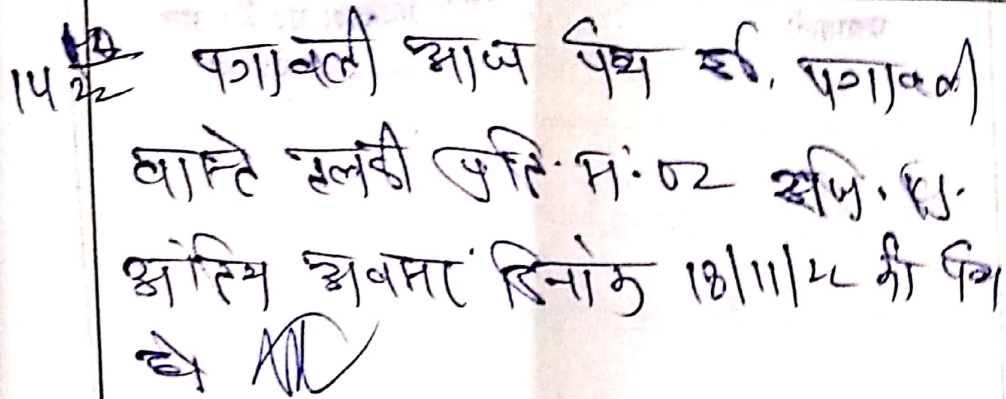 14 पत्रावली आज पेश हुई, पत्रावली
वास्ते तलबी प्रति. सं. 02 रजि. ए.
अंतिम अवसर दिनांक 18/11/22 को पेश
हो